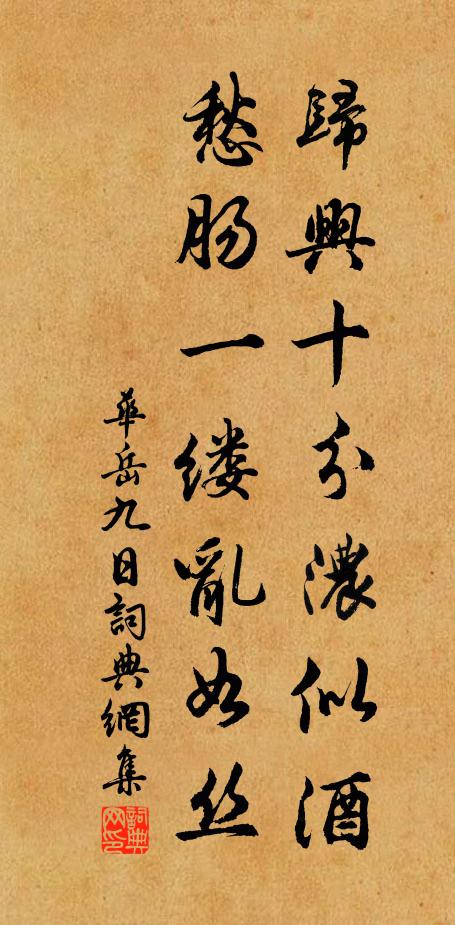 歸興十分濃似酒
愁肠一缕亂如丝
華岳九日詞典網集
詞典网印